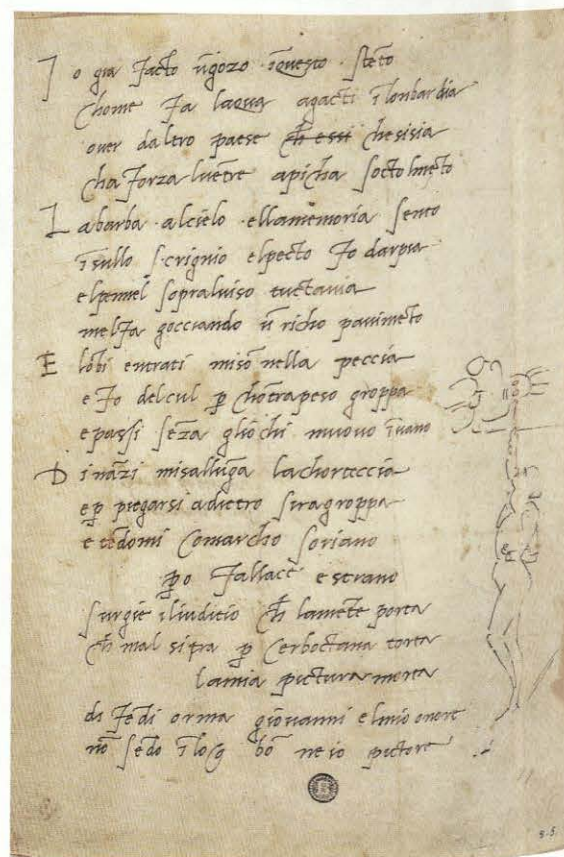 I o gia facto ūgozo īquesto stēto
chome fa laqua agacti ī lonbardia
over daltro paese ch̄ essi chesisia
cha forza lvētre apicha soctolmēto
L abarba alcielo ellamemoria sento
īsullo scrignio elpecto fo darpia
elpennel sopraluiso tuctavia
melfa gocciando ū richo pavimēto
E lōbi entrati misō nella peccia
e fo delcul p̱ chōtrapeso groppa
epassi sēza gliochi muovo īvano
D ināzi misallūga lachorteccia
ep̱ piegarsi adietro siragroppa
e tēdomi comarcho soriano
p̱o fallace e strano
surgie iliuditio ch̄ lamēte porta
ch̄ mal sitra p̱ cerboctana torta
lamia pictura morta
di fēdi orma giovanni elmio onore
nō sēdo ī loco bō ne io pictore